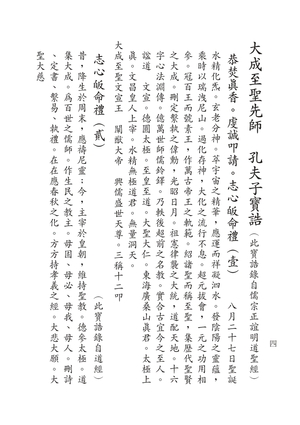 大成至聖先師　孔夫子寶誥（此寶誥錄自儒宗正誼明道聖經）
恭焚真香。虔誠叩請。志心皈命禮（壹）　八月二十七日聖誕
水精化炁。玄老分神。萃宇宙之精華，應運而祥凝泗水。發陰陽之靈蘊，
乘時以瑞洩尼山。過化存神，大化之流行不息。超元拔會，一元之功用相
參。冠百王而號素王，作萬古帝王之軌範。紹諸聖而稱至聖，集歷代聖賢
之大成。刪定繫執之偉勳，光昭日月。祖憲律襲之大統，道配天地。十六
字心法淵傳。億萬世師儒鈐鐸。乃軼後超前之名教。實合古宜今之至人。
謚道　文宣。德圓太極。至皇至道。大聖大仁。東海廣桑山真君。太極上
真。文昌皇人上宰。水精無極道君。無量洞天。
大成至聖文宣王　闡猷大帝　興儒盛世天尊。三稱十二叩
志心皈命禮（貳）　（此寶誥錄自道經）
昔，降生於周末，應禱尼靈；今，主宰於皇朝，維持聖教。德參太極。道
集大成。為百世之儒師。作生民之教主。毋固、毋必、毋我、毋人。刪詩
、定書、繫易、執禮。在在應春秋之化。方方持孝義之經。大悲大願。大
聖大慈
四